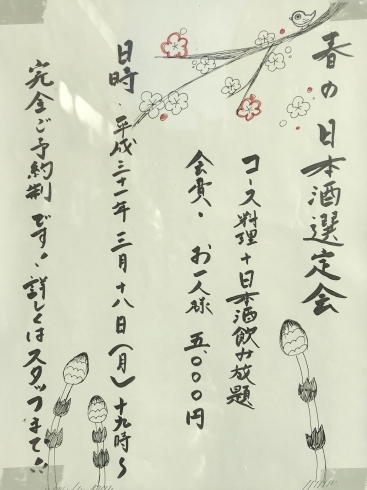 春の日本酒選定会
コース料理+日本酒飲み放題
会費、お一人様 五,000円
日時、平成三十一年三月十八日(月)十九時〜
完全ご予約制です!詳しくはスタッフまで!!